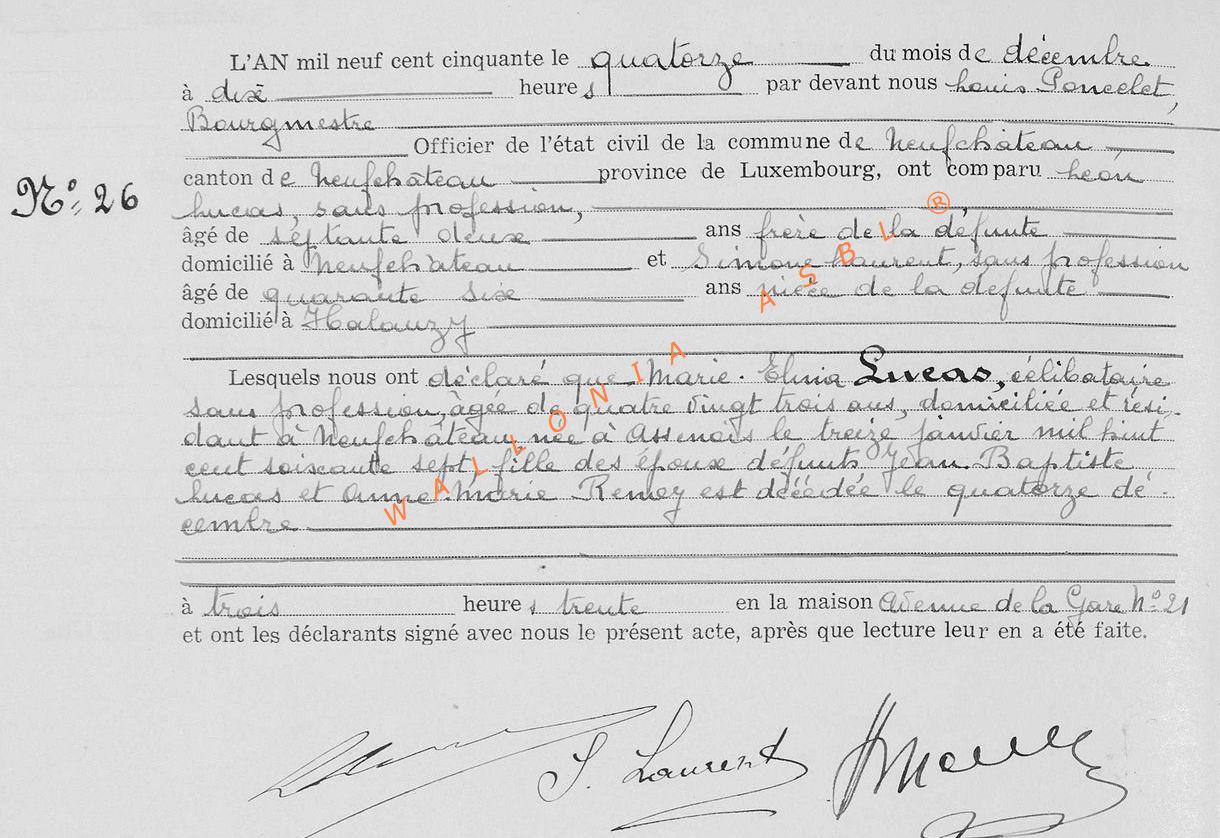 L'AN mil neuf cent cinquante le quatorze du mois de décembre
à dix heures par devant nous Louis Poncelet,
Bourgmestre
Officier de l'état civil de la commune de Neufchâteau
canton de Neufchâteau province de Luxembourg, ont comparu Léon
N° 26
Lucas, sans profession,
âgé de septante deux ans frère de la défunte
domicilié à Neufchâteau et Simone Laurent, sans profession
âgé de quarante six ans nièce de la défunte
domicilié à Halanzy
Lesquels nous ont déclaré que Marie-Elina Lucas, célibataire
sans profession, âgée de quatre vingt trois ans, domiciliée et rési-
dant à Neufchâteau, née à Assenois le treize janvier mil huit
cent soixante sept, fille des époux défunts Jean-Baptiste
Lucas et Anne-Marie Remey est décédée le quatorze dé-
cembre
à trois heures trente en la maison Avenue de la Gare N° 21
et ont les déclarants signé avec nous le présent acte, après que lecture leur en a été faite.
S. Laurent
WALLONIA ASBL ®